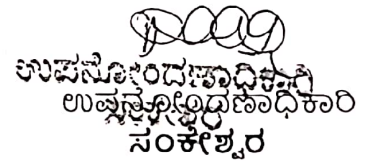 ಉಪನೋಂದಣಾಧಿಕಾರಿ
ಉಪನೋಂದ್ರಣಾಧಿಕಾರಿ
ಸಂಕೇಶ್ವರ